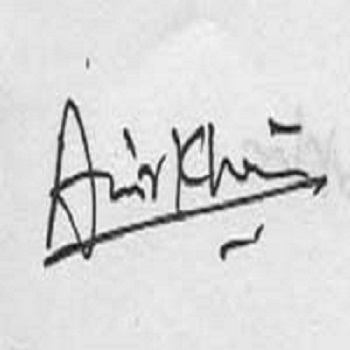 Amir Khan